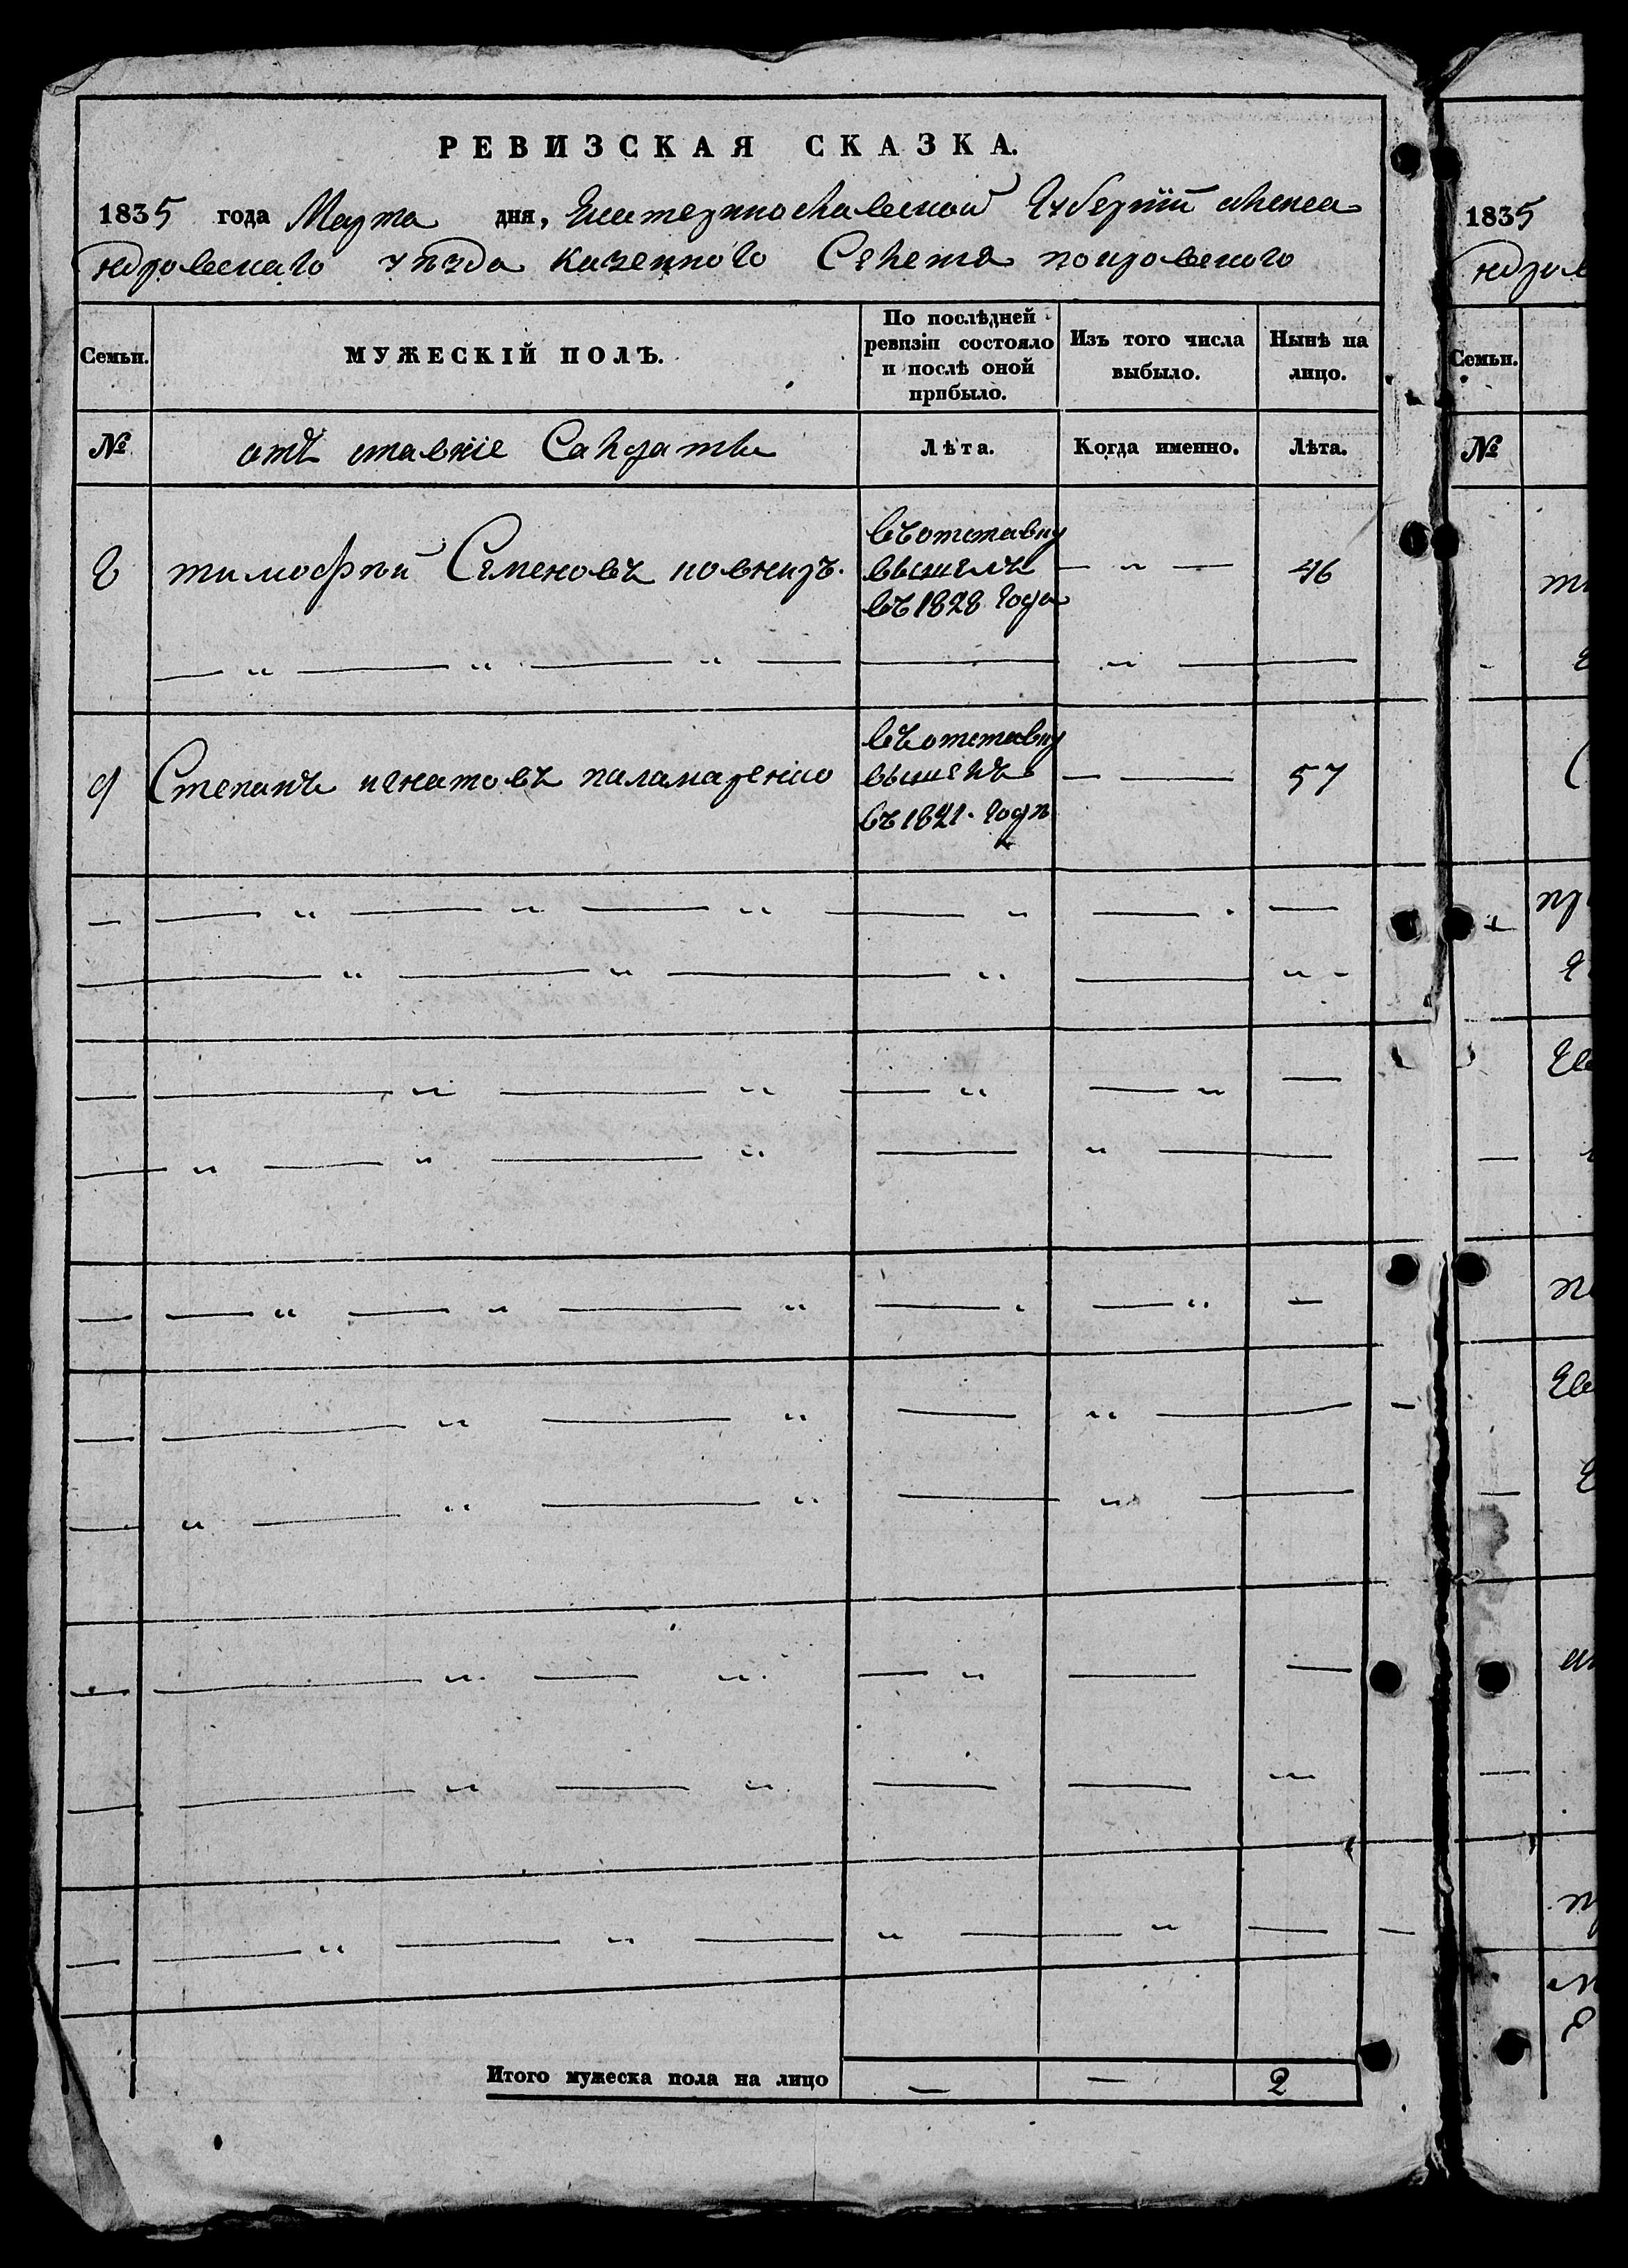 РЕВИЗСКАЯ СКАЗКА.
1835 года Марта дня, Екатеринославской Губерніи алекса
ндровскаго уѣзда казенного Селенія покровского
Семьи. МУЖЕСКІЙ ПОЛЪ. По послѣдней ревизіи состояло и послѣ оной прибыло. Изъ того числа выбыло. Нынѣ на лицо.
№ отъ ставніе Салдаты Лѣта. Когда именно. Лѣта.
въ отставку
тимофѣй Семеновъ вышелъ — „ — 46
въ 1828 Года
въ отставку
9 Степанъ игнатовъ паламаренко вышелъ — — 57
въ 1821. Годѣ
Итого мужеска пола на лицо — — 2
1835
ндров
Семьи.
№